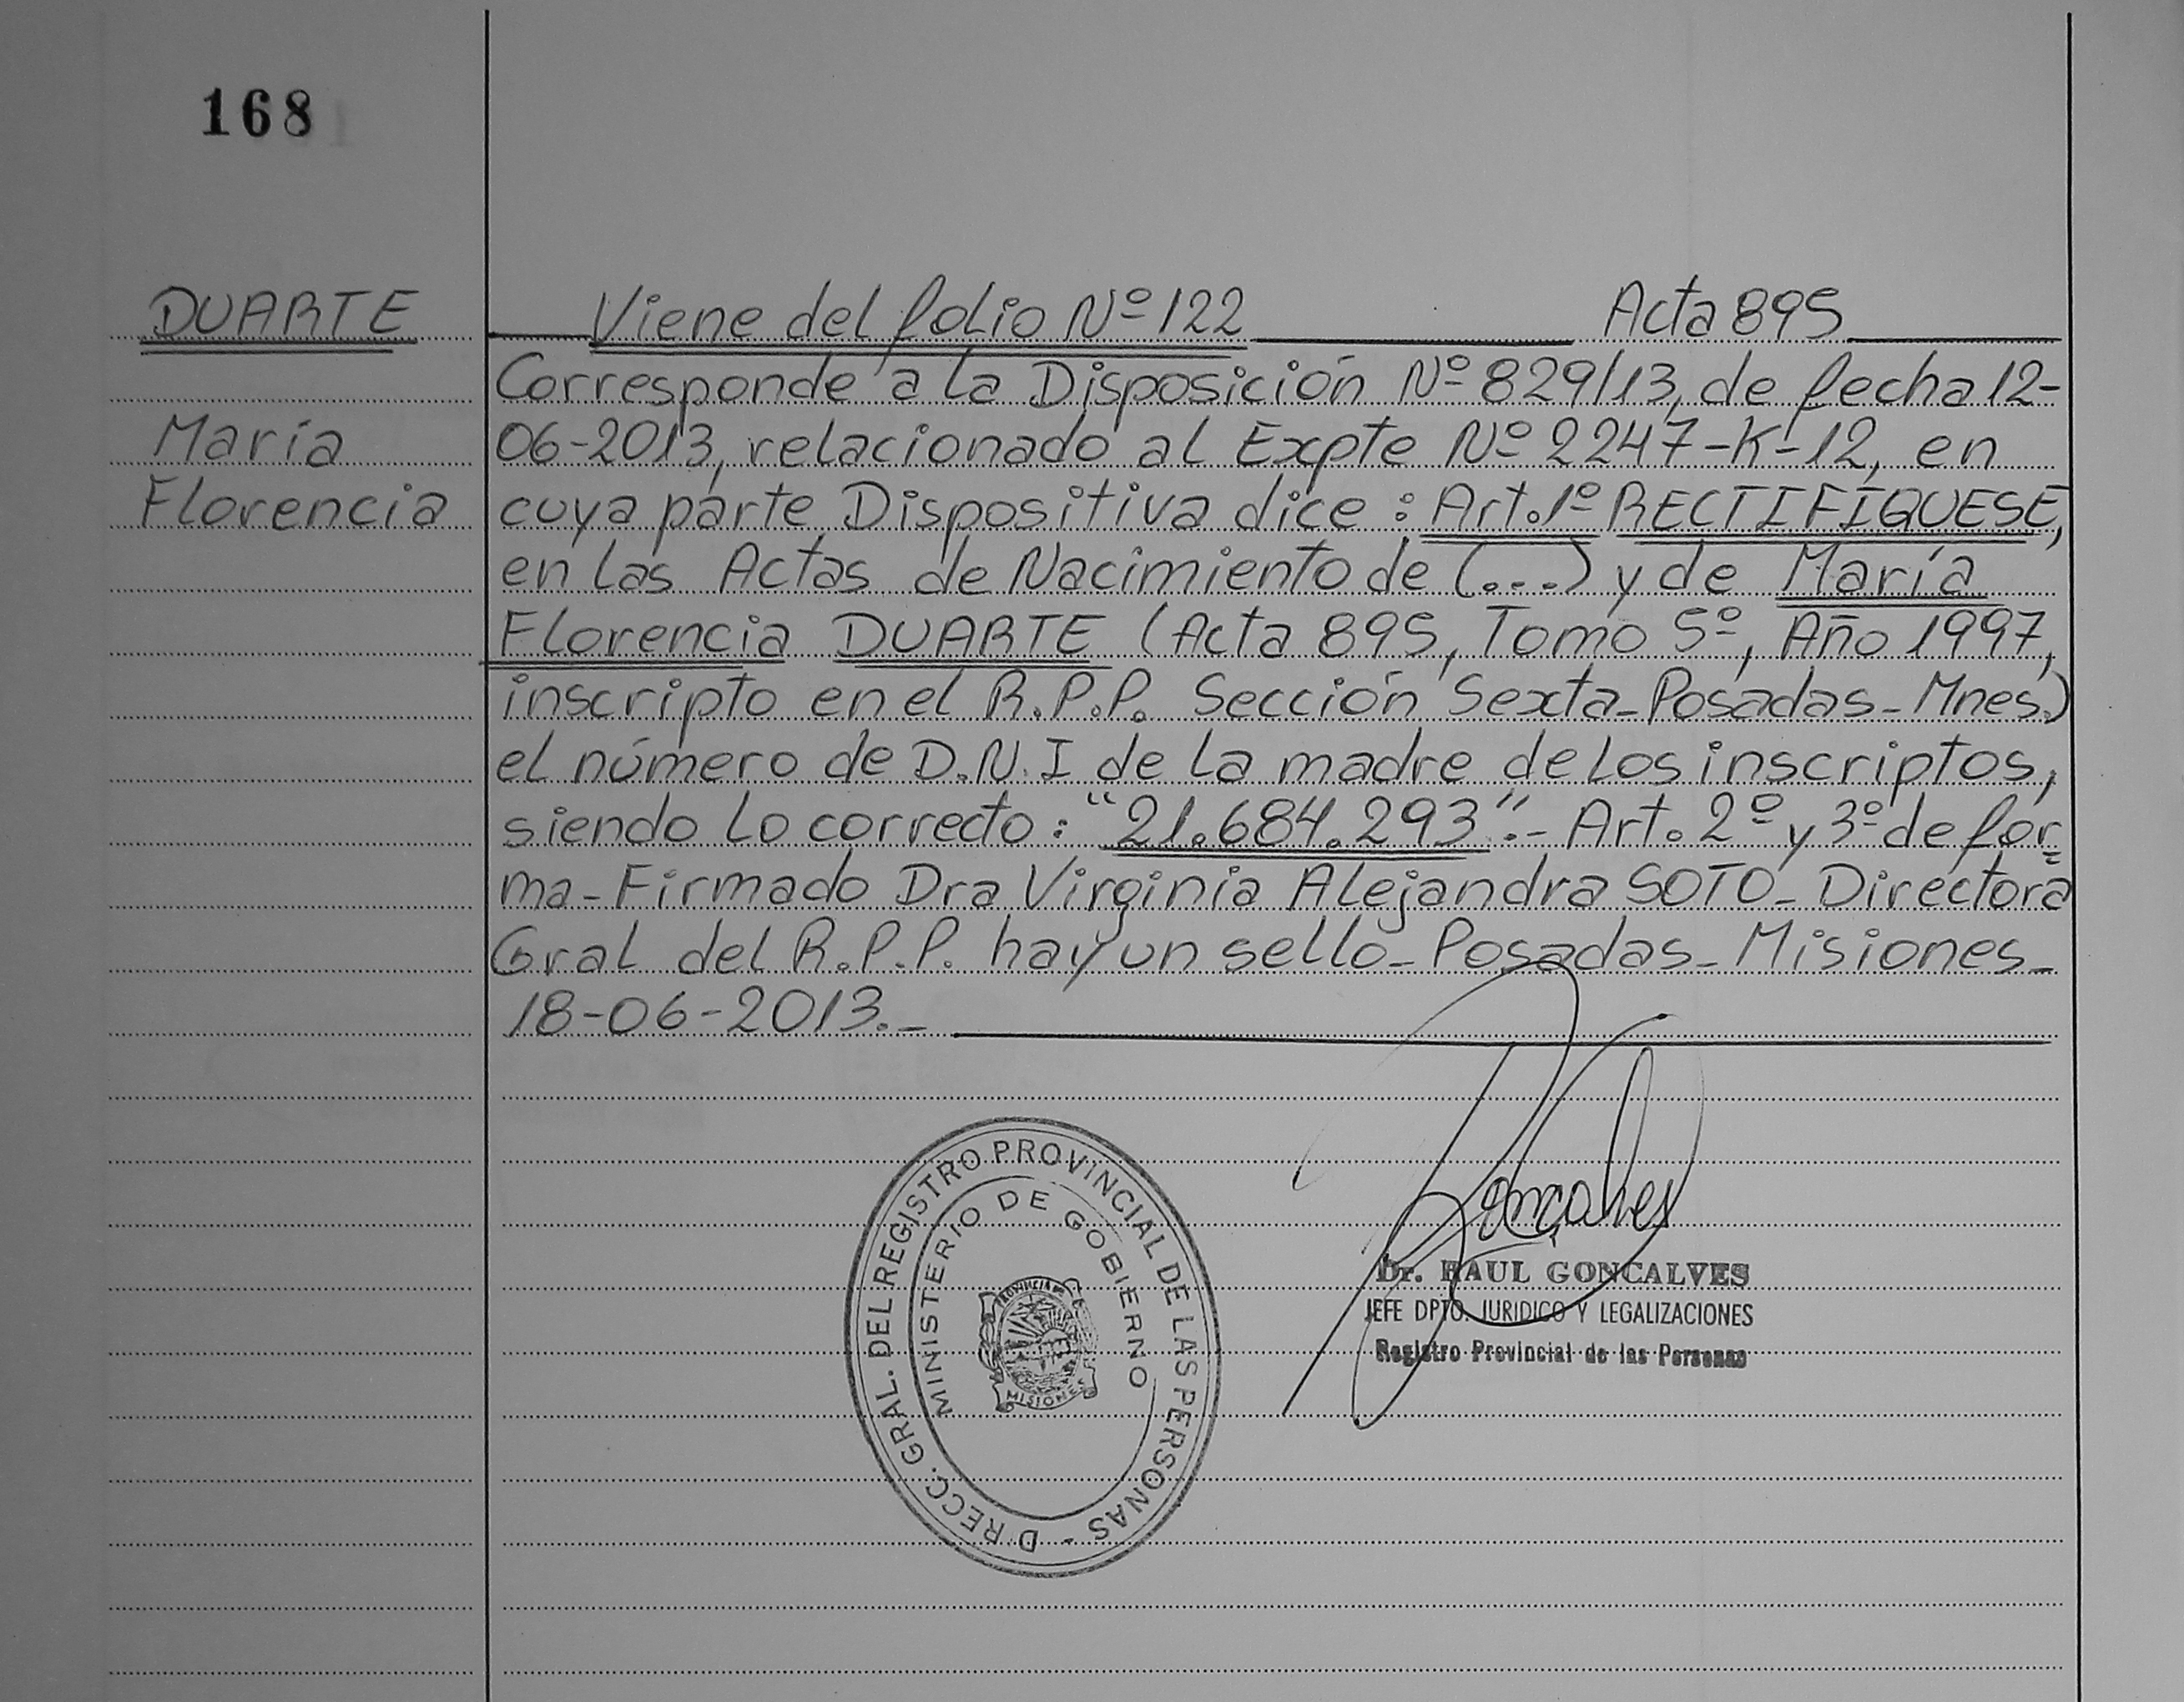 168
DUARTE
María
Florencia
Viene del folio Nº 122 Acta 895
Corresponde a la Disposición Nº 829/13, de fecha 12-
06-2013, relacionado al Expte Nº 2247-K-12, en
cuya parte Dispositiva dice : Art. 1º RECTIFÍQUESE,
en las Actas de Nacimiento de (...) y de María
Florencia DUARTE (Acta 895, Tomo 5º, Año 1997,
inscripto en el R.P.P. Sección Sexta-Posadas-Mnes.)
el número de D.N.I de la madre de los inscriptos,
siendo lo correcto : "21.684.293".- Art. 2º y 3º de for=
ma-Firmado Dra Virginia Alejandra SOTO-Directora
Gral del R.P.P. hay un sello-Posadas-Misiones-
18-06-2013.-
DIRECC. GRAL. DEL REGISTRO PROVINCIAL DE LAS PERSONAS -
MINISTERIO DE GOBIERNO
PROVINCIA DE
MISIONES
Goncalves
Dr. RAUL GONCALVES
JEFE DPTO. JURIDICO Y LEGALIZACIONES
Registro Provincial de las Personas